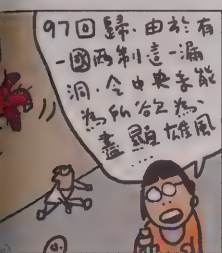 97回歸.由於有
一國兩制這一漏
洞.令中央未能
為所欲為、
盡顯雄風
……